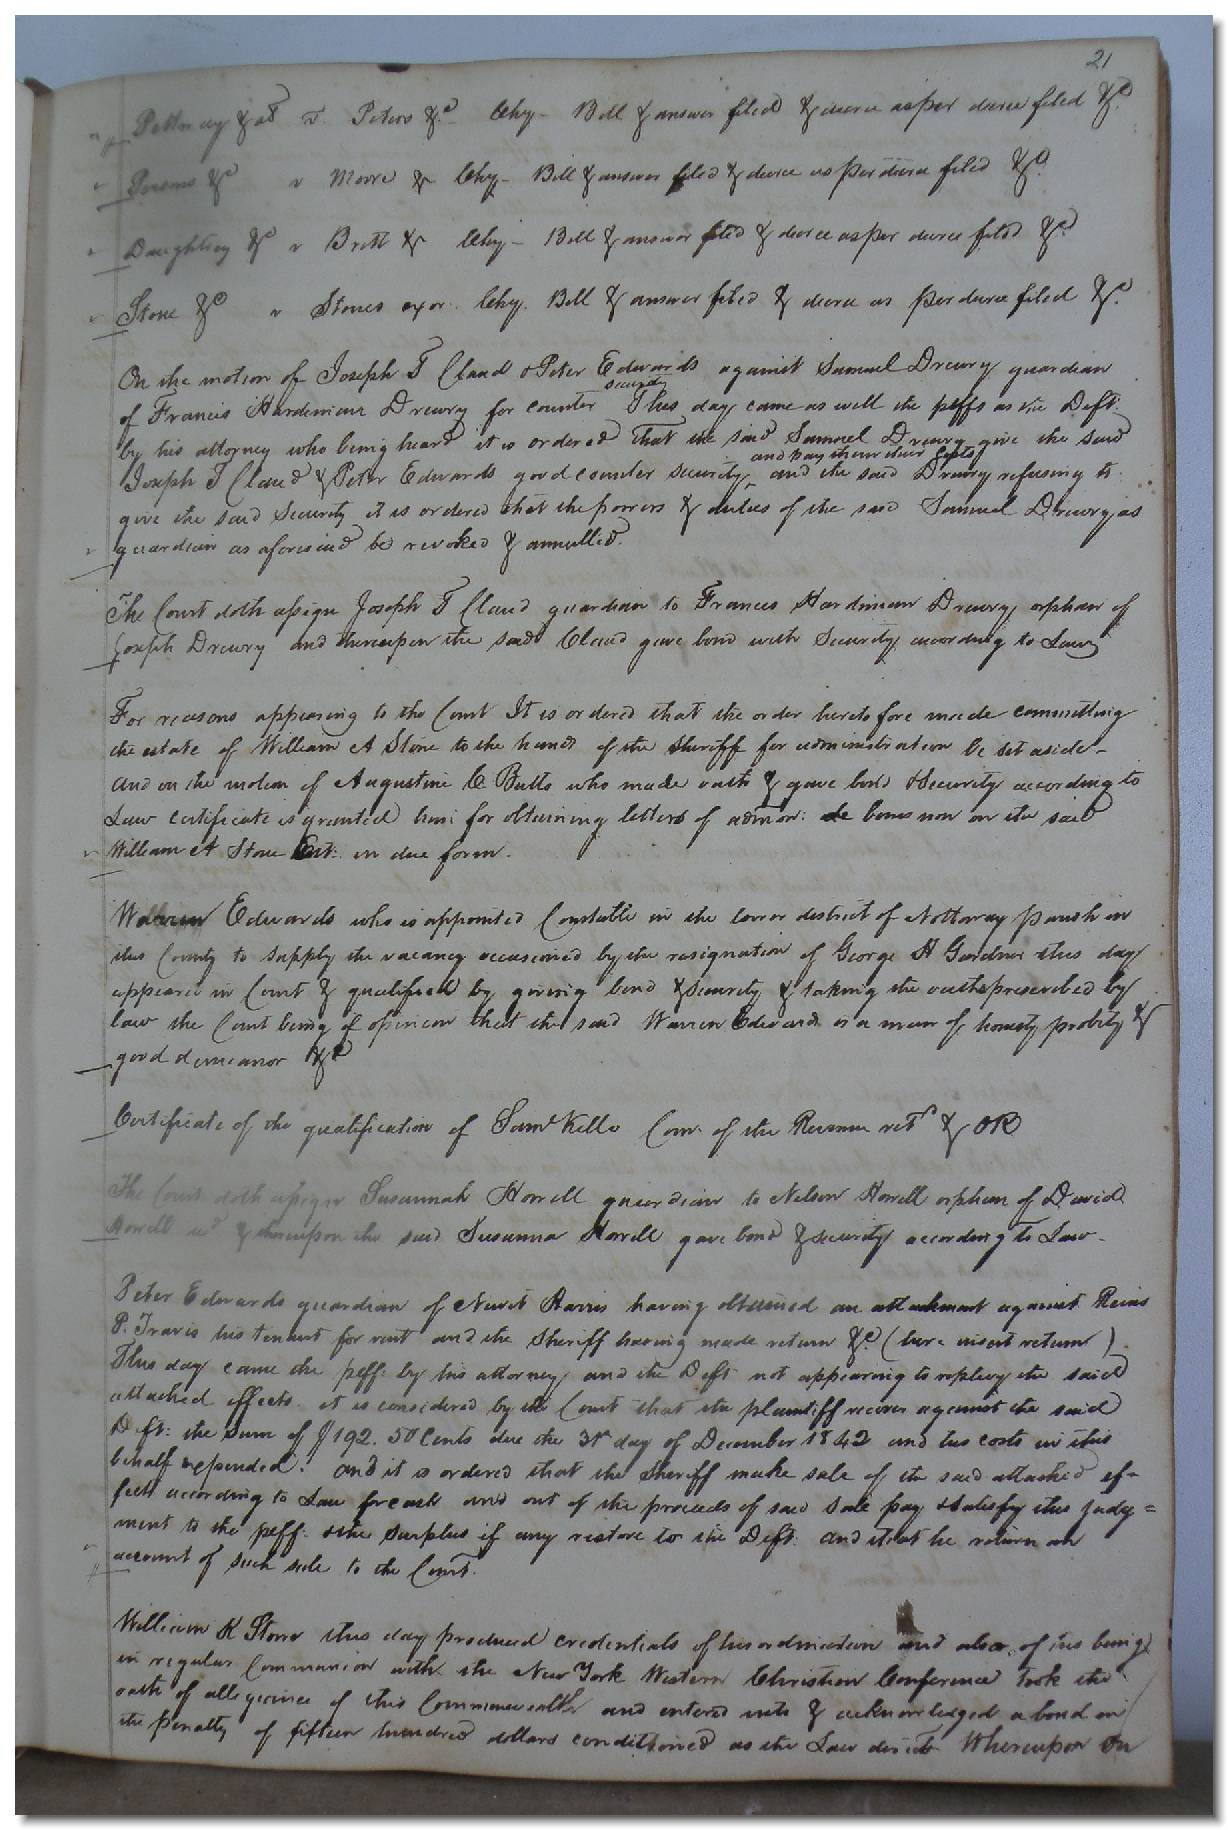 21
& als v Peters &c Chy - Bill & answer filed & decree as per decree filed &c
Persons &c v Moore & Chy - Bill & answer filed & decree as per decree filed &c
Daughtrey &c v Britt & Chy - Bill & answer filed & decree as per decree filed &c
Stone &c v Stones exor. Chy. Bill & answer filed & decree as per decree filed &c
On the motion of Joseph T Claud & Peter Edwards against Samuel Drewry guardian
security
of Francis Hardiman Drewry for counter This day came as well the plffs as the Deft.
by his attorney who being heard it is ordered that the said Samuel Drewry give the said
and pay them their Costs
Joseph T Claud & Peter Edwards good counter security and the said Drewry refusing to
give the said Security it is ordered that the powers & duties of the said Samuel Drewry as
guardian as aforesaid be revoked & annulled.
The Court doth assign Joseph T Claud guardian to Frances Hardiman Drewry orphan of
Joseph Drewry and thereupon the said Claud gave bond with Security according to Law
For reasons appearing to the Court It is ordered that the order heretofore made committing
the estate of William A Stone to the hands of the Sheriff for administration be set aside -
and on the motion of Augustine C Butts who made oath & gave bond & Security according to
Law certificate is granted him for obtaining letters of admon: de bonus non on the said
William A Stone Est: in due form.
Warren Edwards who is appointed Constable in the lower district of Nottoway parish in
this County to supply the vacancy occasioned by the resignation of George H Gardner this day
appeared in Court & qualified by giving bond & security & taking the oaths prescribed by
law the Court being of opinion that the said Warren Edwards is a man of honesty probity &
good demeanor &c
Certificate of the qualification of Saml Kello Com. of the Revenue retd & OR
The Court doth assign Susannah Howell guardian to Nelson Howell orphan of David
Howell decd & thereupon the said Susanna Howell gave bond & security according to Law -
Peter Edwards guardian of Newit Harris having obtained an attachment against Rhias
P. Travis his tenant for rent and the Sheriff having made return &c (here insert return)
This day came the plff: by his attorney and the Deft not appearing to replevy the said
attached effects. it is considered by the Court that the plaintiff recover against the said
Deft: the sum of $192. 50 Cents due the 31st day of December 1842 and his costs in this
behalf expended. And it is ordered that the Sheriff make sale of the said attached ef=
fects according to Law for cash and out of the proceeds of said sale pay & satisfy this judg=
ment to the plff: & the surplus if any restore to the Deft: and that he return an
account of such sale to the Court.
William K Stone this day produced credentials of his ordination and also of his being
in regular Communion with the New York Western Christian Conference took the
oath of allegiance of this Commonwealth and entered into & acknowledged a bond in
the penalty of fifteen hundred dollars conditioned as the Law directs Whereupon On